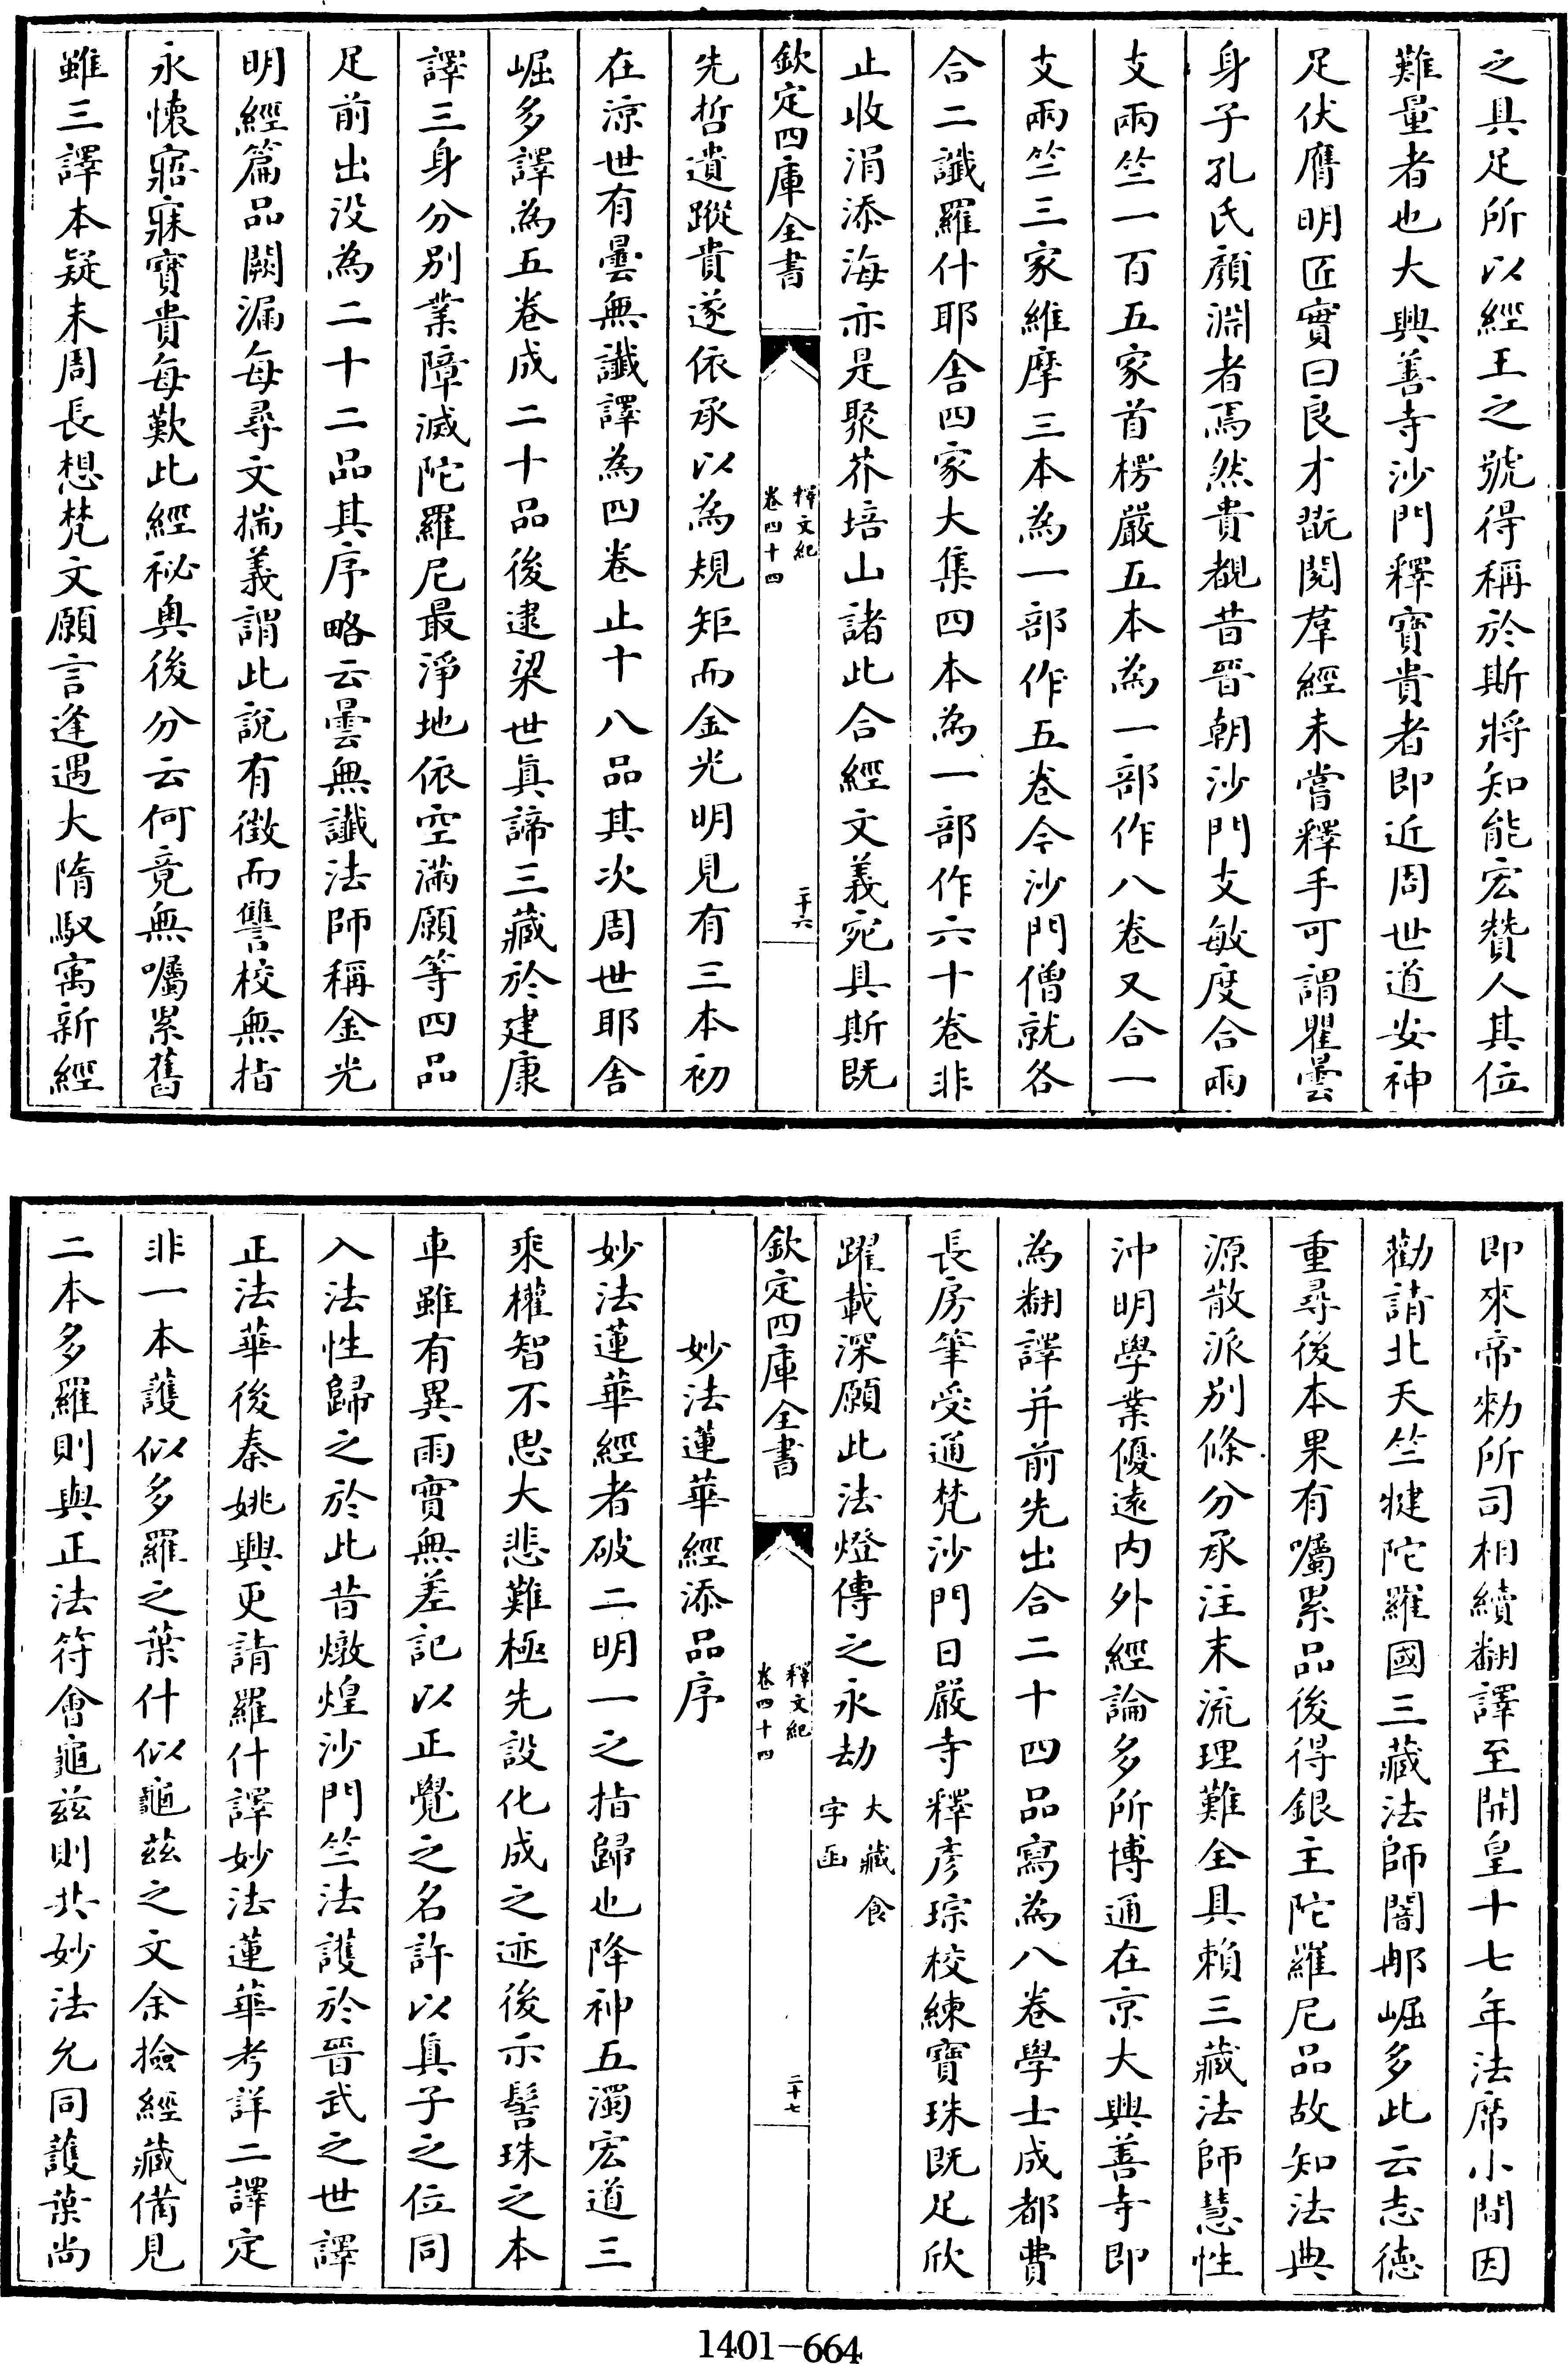 之具足所以經王之號得稱於斯將知能宏贊人其位
難量者也大興善寺沙門釋寶貴者即近周世道安神
足伏膺明匠實曰良才翫閱羣經未嘗釋手可謂瞿曇
身子孔氏顏淵者焉然貴覩昔晉朝沙門支敏度合兩
支兩竺一百五家首楞嚴五本為一部作八卷又合一
支兩竺三家維摩三本為一部作五卷今沙門僧就各
合二讖羅什耶舍四家大集四本為一部作六十卷非
止收涓添海亦是聚芥培山諸此合經文義宛具斯既
欽定四庫全書
釋文紀
卷四十四
二十六
先哲遺蹤貴遂依承以為規矩而金光明見有三本初
在涼世有曇無讖譯為四卷止十八品其次周世耶舍
崛多譯為五卷成二十品後逮梁世真諦三藏於建康
譯三身分別業障滅陀羅尼最淨地依空滿願等四品
足前出沒為二十二品其序略云曇無讖法師稱金光
明經篇品闕漏每尋文揣義謂此說有徵而讐校無指
永懷寤寐寶貴每歎此經秘奧後分云何竟無囑累舊
雖三譯本疑未周長想梵文願言逢遇大隋馭寓新經
即來帝勑所司相續翻譯至開皇十七年法席小間因
勸請北天竺揵陀羅國三藏法師闍那崛多此云志德
重尋後本果有囑累品後得銀主陀羅尼品故知法典
源散派別條分承注末流理難全具賴三藏法師慧性
沖明學業優遠內外經論多所博通在京大興善寺即
為翻譯并前先出合二十四品寫為八卷學士成都費
長房筆受通梵沙門日嚴寺釋彥琮校練寶珠既足欣
躍載深願此法燈傳之永劫大藏食
字函
欽定四庫全書
釋文紀
卷四十四
二十七
妙法蓮華經添品序
妙法蓮華經者破二明一之指歸也降神五濁宏道三
乘權智不思大悲難極先設化成之迹後示髻珠之本
車雖有異雨實無差記以正覺之名許以真子之位同
入法性歸之於此昔燉煌沙門竺法護於晉武之世譯
正法華後秦姚興更請羅什譯妙法蓮華考詳二譯定
非一本護似多羅之葉什似龜茲之文余撿經藏備見
二本多羅則與正法符會龜茲則共妙法允同護葉尚
1401-664